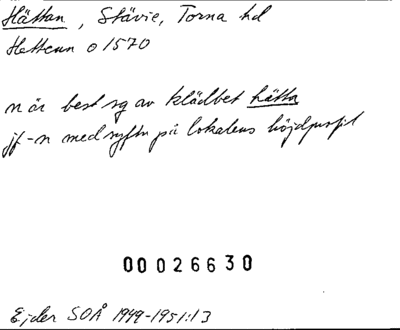 Hättan, Stävie, Torna hd
Hattenn o 1570
n är best sg av klädbet hätta
jf-n med syftn på lokalens höjdprofil
00 026630
Ejder SOÅ 1949-1951:13